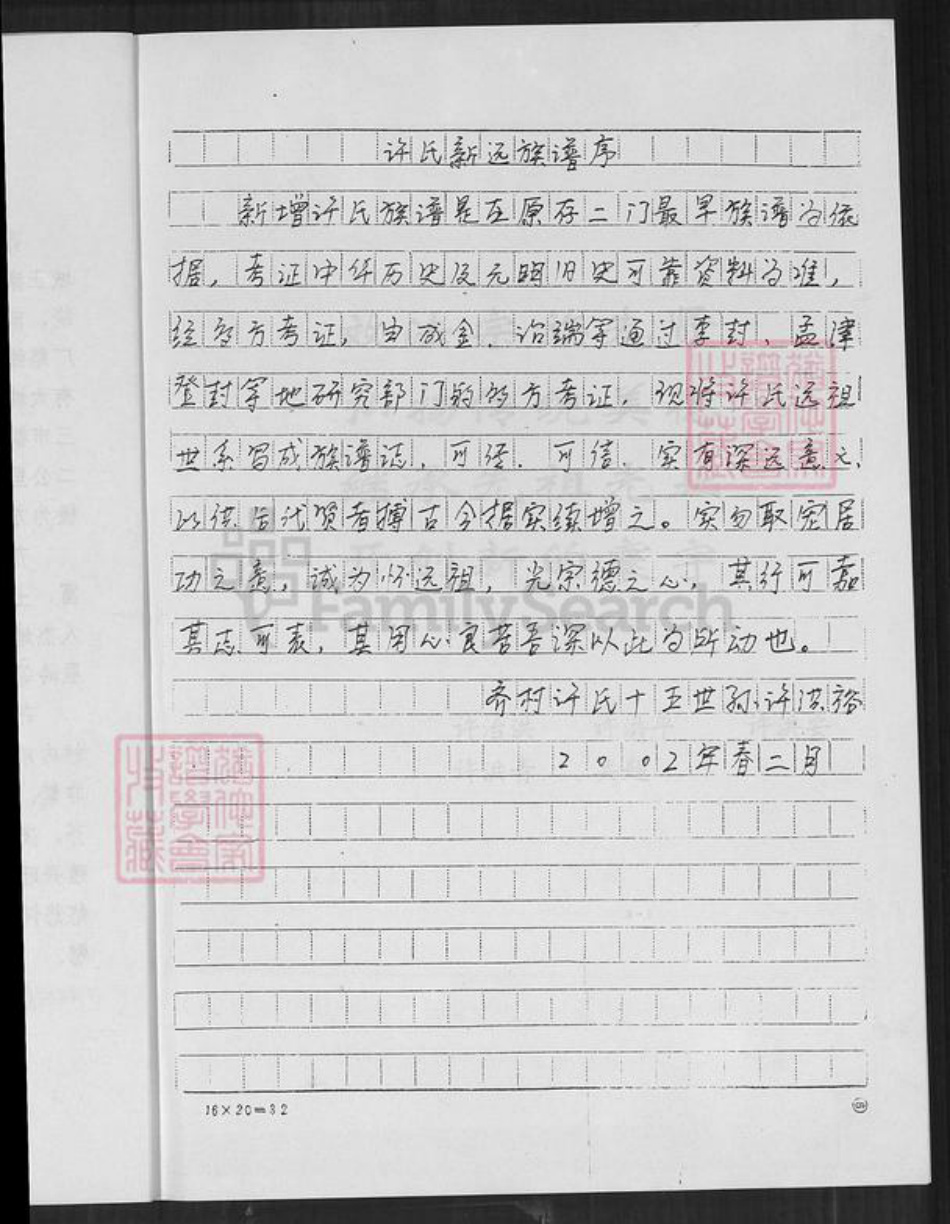 许氏新远族谱序
新增许氏族谱是在原存二门最早族谱为依
据，考证中华历史及元明旧史可靠资料为准，
经多方考证，由成金、治端等通过李封、孟津
登封等地研究部门的多方考证，现将许氏远祖
世系写成族谱志，可经、可信、实有深远意义、
以供后代贤者搏古今据实续增之。实勿取宠居
功之意，诚为怀远祖，光宗德之心，其行可嘉
其志可表，其用心良苦吾深以此为所动也。
齐村许氏十五世孙许洪裕
2002年春二月
16×20=32
FamilySearch